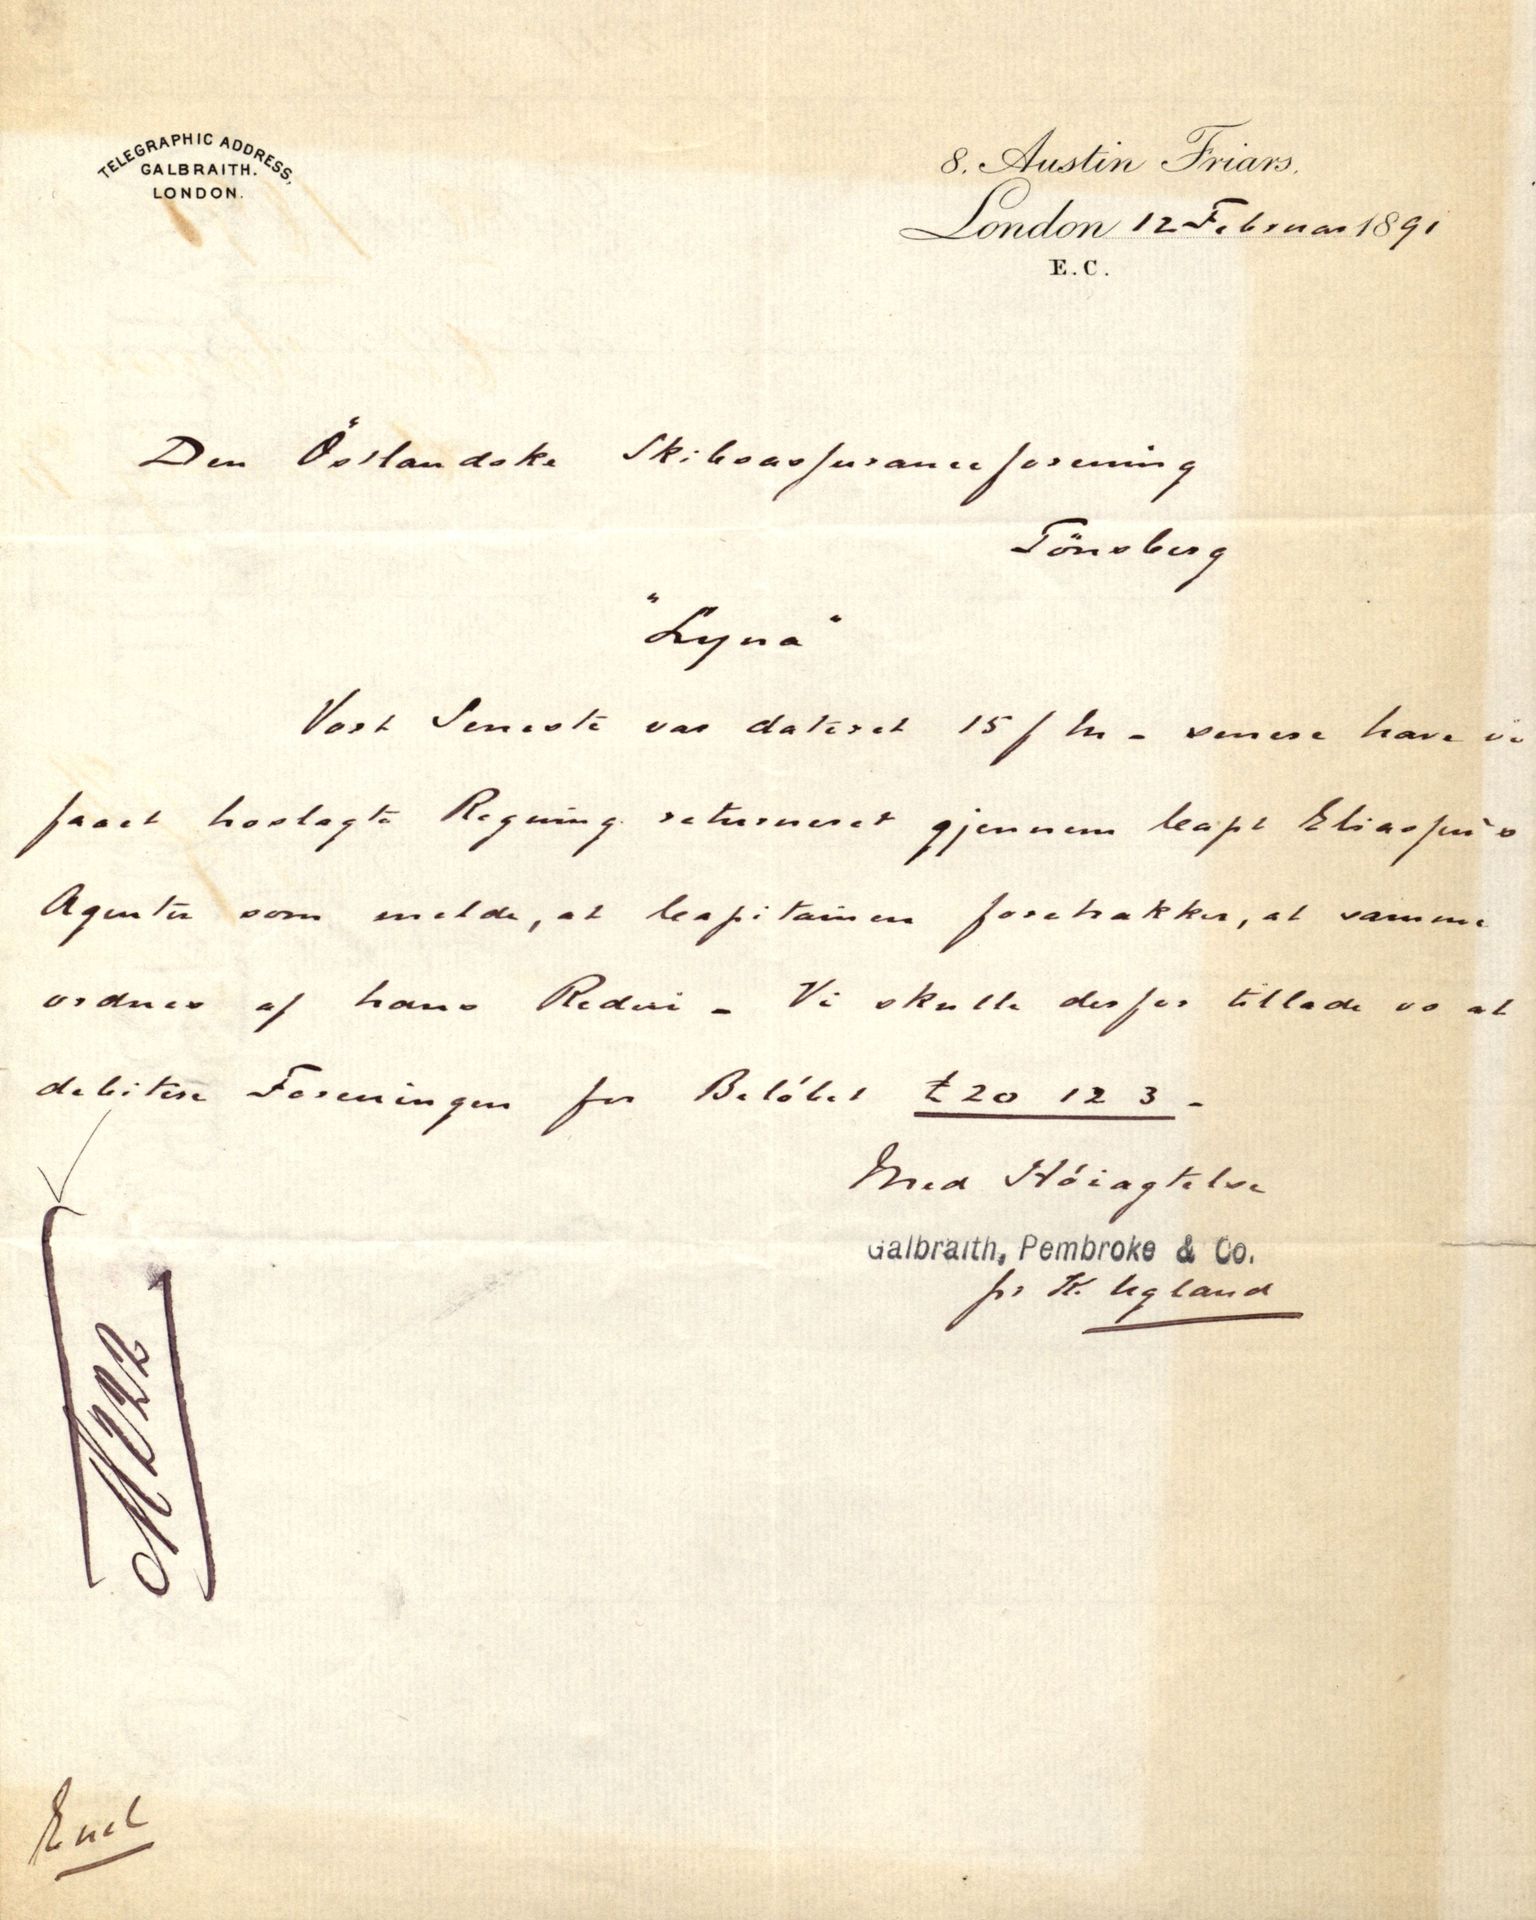 TELEGRAPHIC ADDRESS,
GALBRAITH.
LONDON.
8. Austin Friars.
London 12 Februar 1891
E.C.
Den Östlandske Skibsassuranceforening
Tönsberg
"Lyna"
Vort Seneste var dateret 15 f M - senere have vi
faaet hoslagte Regning returneret gjennem Capt Eliassen's
Agenter som melde, at Capitainen foretrækker, at samme
ordnes af hans Rederi - Vi skulle derfor tillade os at
debitere Foreningen for Belöbet £20 12 3 -
Med Höiagtelse
Galbraith, Pembroke & Co.
pr K. Ugland
M 222
Encl